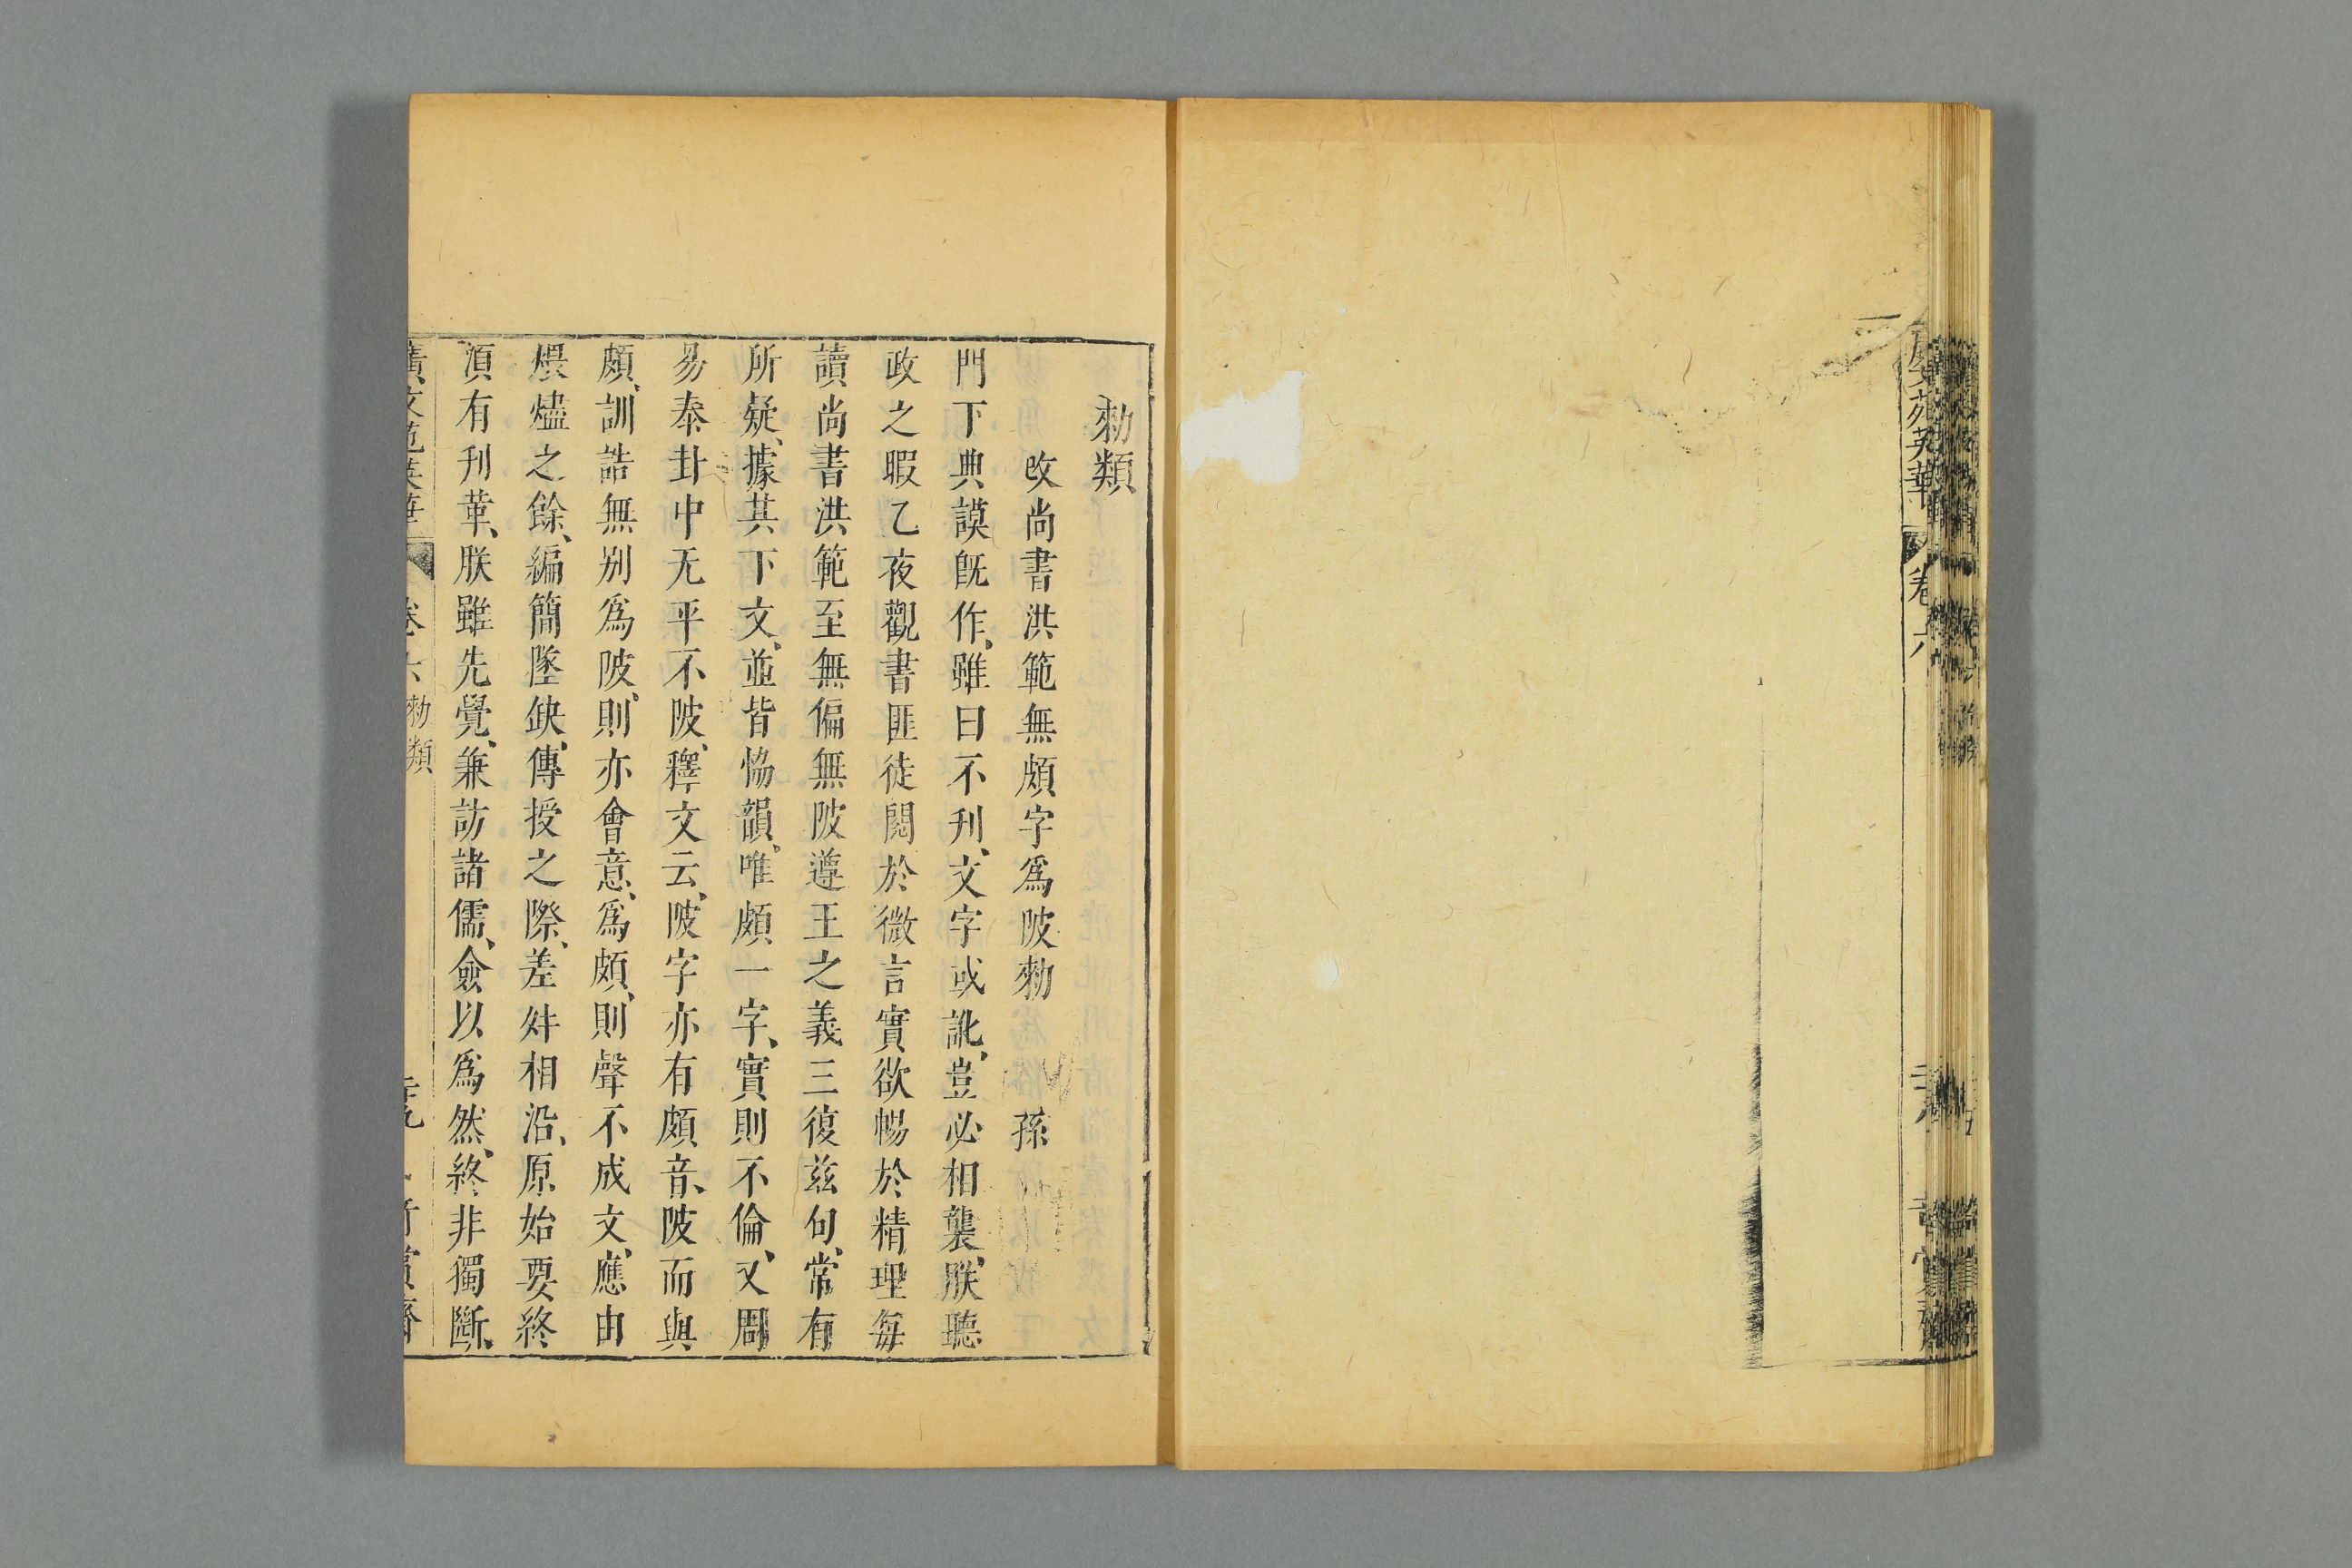 苑英華
卷六
勑類
攺尚書洪範無頗字爲陂勑
孫
門下典謨旣作、雖曰不刋、文字或訛、豈必相襲、朕聽
政之暇乙夜觀書匪徒閱於微言實欲暢於精理每
讀尚書洪範至無偏無陂遵王之義三復兹句、常有
所疑、據其下文、並皆恊韻。唯頗一字、實則不倫、又周
易泰卦中无平不陂、釋文云、陂字亦有頗音、陂而與
頗、訓詁無别爲陂。則亦會意、爲頗、則聲不成文、應由
煨燼之餘、編簡墜缺、傳授之際、差舛相沿、原始要終
湏有刋革、朕雖先覺、兼訪諸儒、僉以爲然、終非獨斷、
廣文苑英華
卷六 勑類